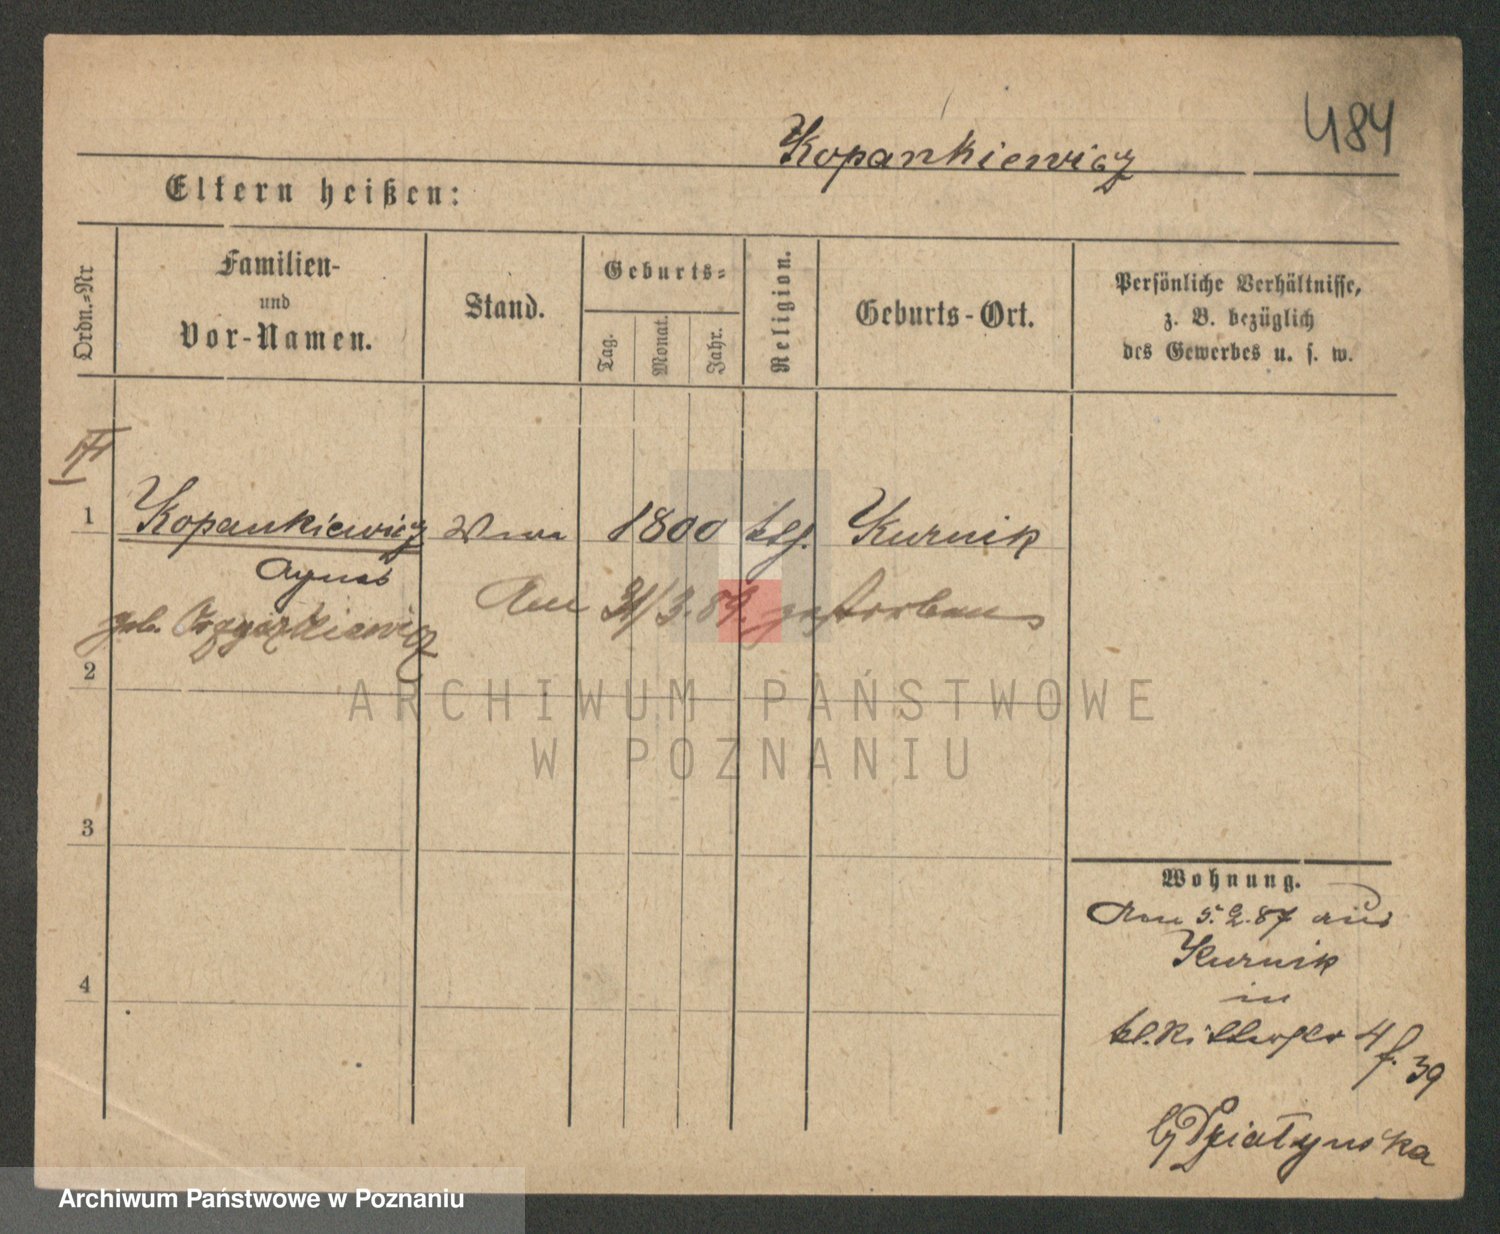 484
Kopankiewicz
Eltern heißen:
Ordn.-Nr
Familien-
und
Vor-Namen.
Stand.
Geburts-
Tag.
Monat.
Jahr.
Religion.
Geburts-Ort.
Persönliche Verhältnisse,
z. B. bezüglich
des Gewerbes u. s. w.
1 Kopankiewicz 1800 ktl. Kurnik
Agnes
Am 31/3.89. gestorben
geb.
2
3
4
Wohnung.
Am 5.2.87 aus
Kurnik
in
kl. Ritterstr 4
f. 39
Działynska
ARCHIWUM PAŃSTWOWE
W POZNANIU
Archiwum Państwowe w Poznaniu